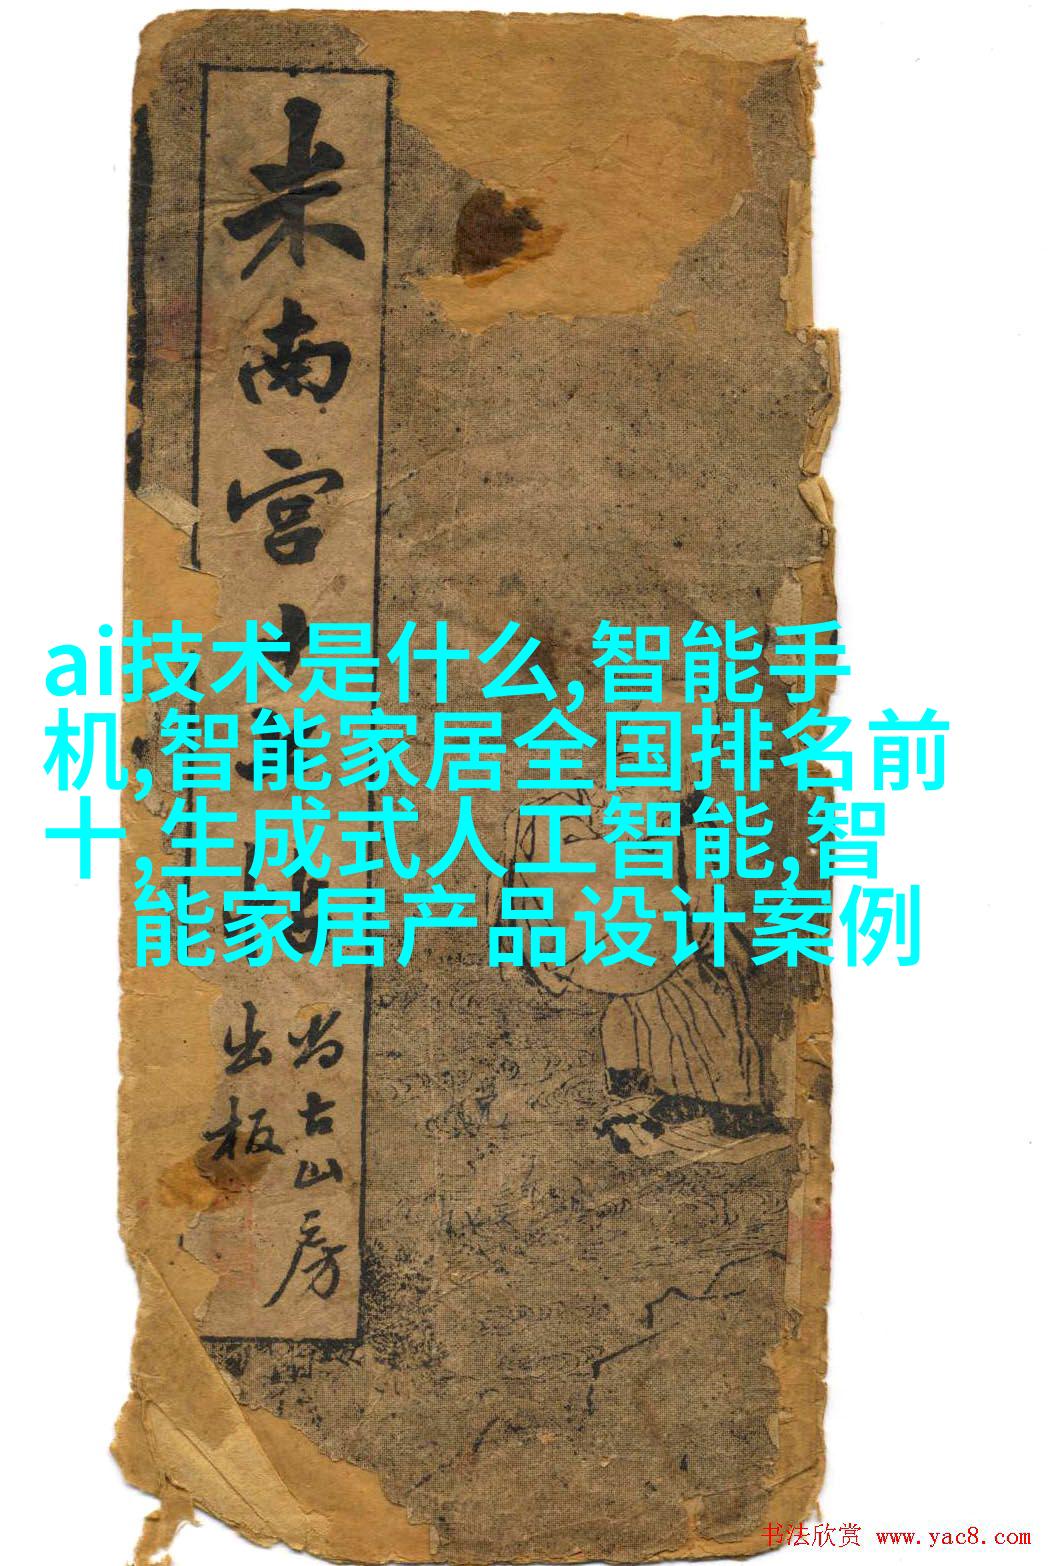 米南宫
ai技术是什么,智能手
机,智能家居全国排名前
十,生成式人工智能,智
能家居产品设计案例
尚古山房
出板
书法欣赏 www.yac8.com